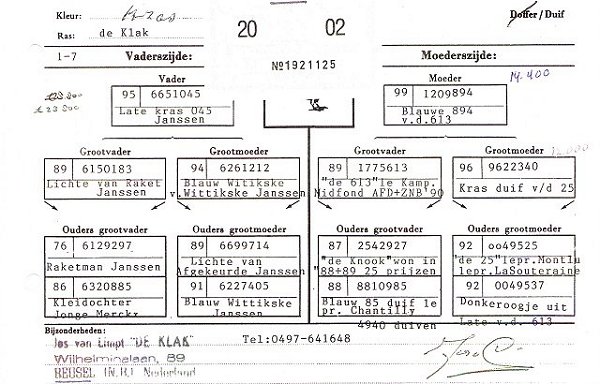 Kleur: Kras
Ras: de Klak
20 02
Doffer / Duif
1-7 Vaderszijde:
№1921125
Moederszijde:
Vader
Moeder
14.400
95 6651045
Late kras 045
Janssen
99 1209894
Blauwe 894
v.d.613
Grootvader
Grootmoeder
Grootvader
Grootmoeder
89 6150183
Lichte van Raket
Janssen
94 6261212
Blauw Witikske
v.Wittikske Janssen
89 1775613
"de 613"1e Kamp.
Nidfond AFD+ZNB'90
96 9622340
Kras duif v/d 25
Ouders grootvader
Ouders grootmoeder
Ouders grootvader
Ouders grootmoeder
76 6129297
Raketman Janssen
89 6699714
Lichte van
Afgekeurde Janssen
87 2542927
"de Knook"won in
"88+89 25 prijzen
92 oo49525
"de 25"1epr.Montlu
1epr.LaSouteraine
86 6320885
Kleidochter
Jonge Merckx
91 6227405
Blauw Wittikske
Janssen
88 8810985
Blauw 85 duif 1e
pr. Chantilly
4940 duiven
92 0049537
Donkeroogje uit
Late v.d. 613
Bijzonderheden:
Jos van Limpt "DE KLAK"
Wilhelminalaan, 89
REUSEL (N.B.) Nederland
Tel:0497-641648